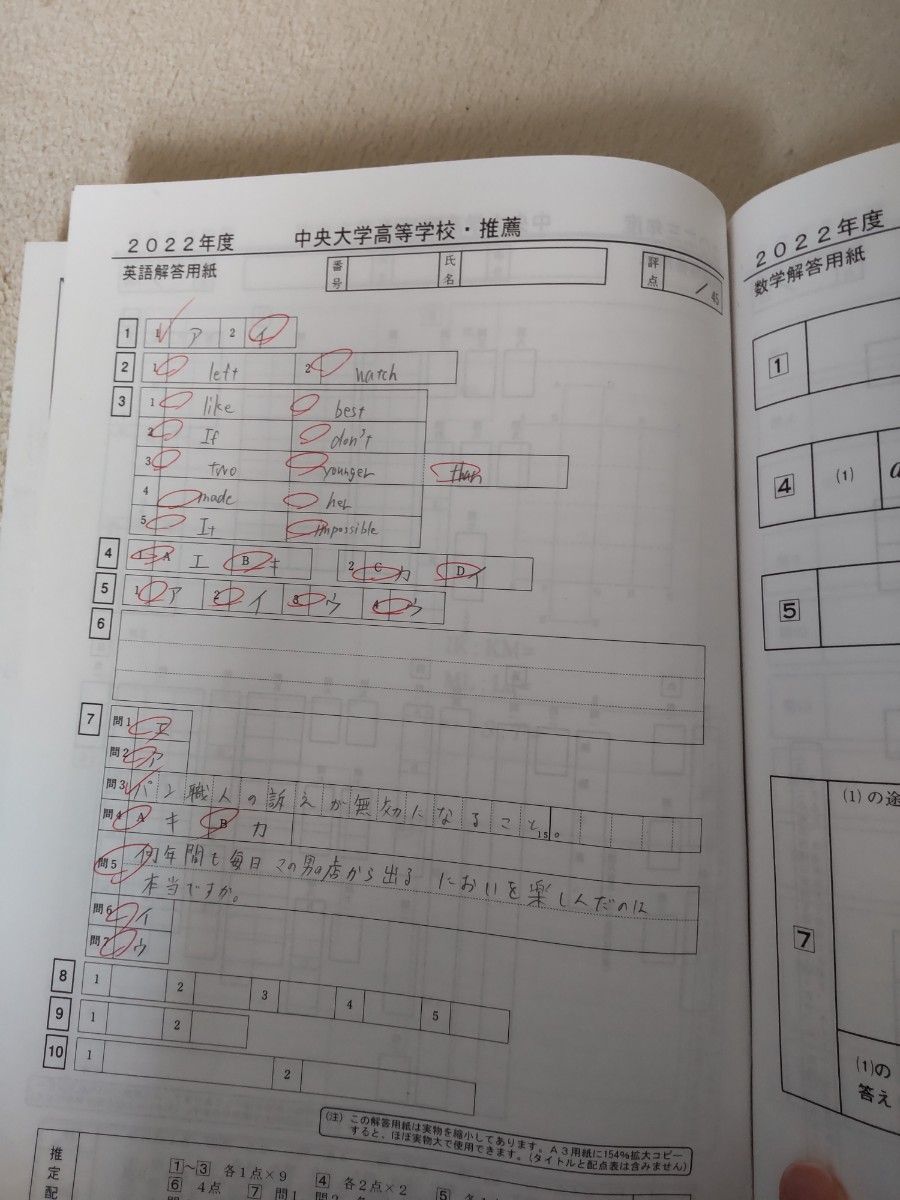 2022年度 中央大学高等学校・推薦
英語解答用紙 番号 氏名 評点 /45
1 1 ア 2 イ
2 1 left 2 watch
3 1 like best
2 If don't
3 two younger than
4 made her
5 It impossible
4 1 A エ B キ 2 C カ D イ
5 1 ア 2 イ 3 ウ 4 ウ
6
7 問1
問2 ア
問3 パン職人の訴えが無効になること。 15
問4 A キ B カ
問5 何年間も毎日この男の店から出るにおいを楽しんだのは
本当ですか。
問6 イ
問7 ウ
8 1 2 3 4 5
9 1 2
10 1 2
(注) この解答用紙は実物を縮小してあります。A3用紙に154%拡大コピー
すると、ほぼ実物大で使用できます。(タイトルと配点表は含みません)
推定配
1～3 各1点×9 4 各2点×2 5
6 4点 7 問1
2022年度
数学解答用紙
1
4 (1)
5
7 (1)の途
(1)の
答え